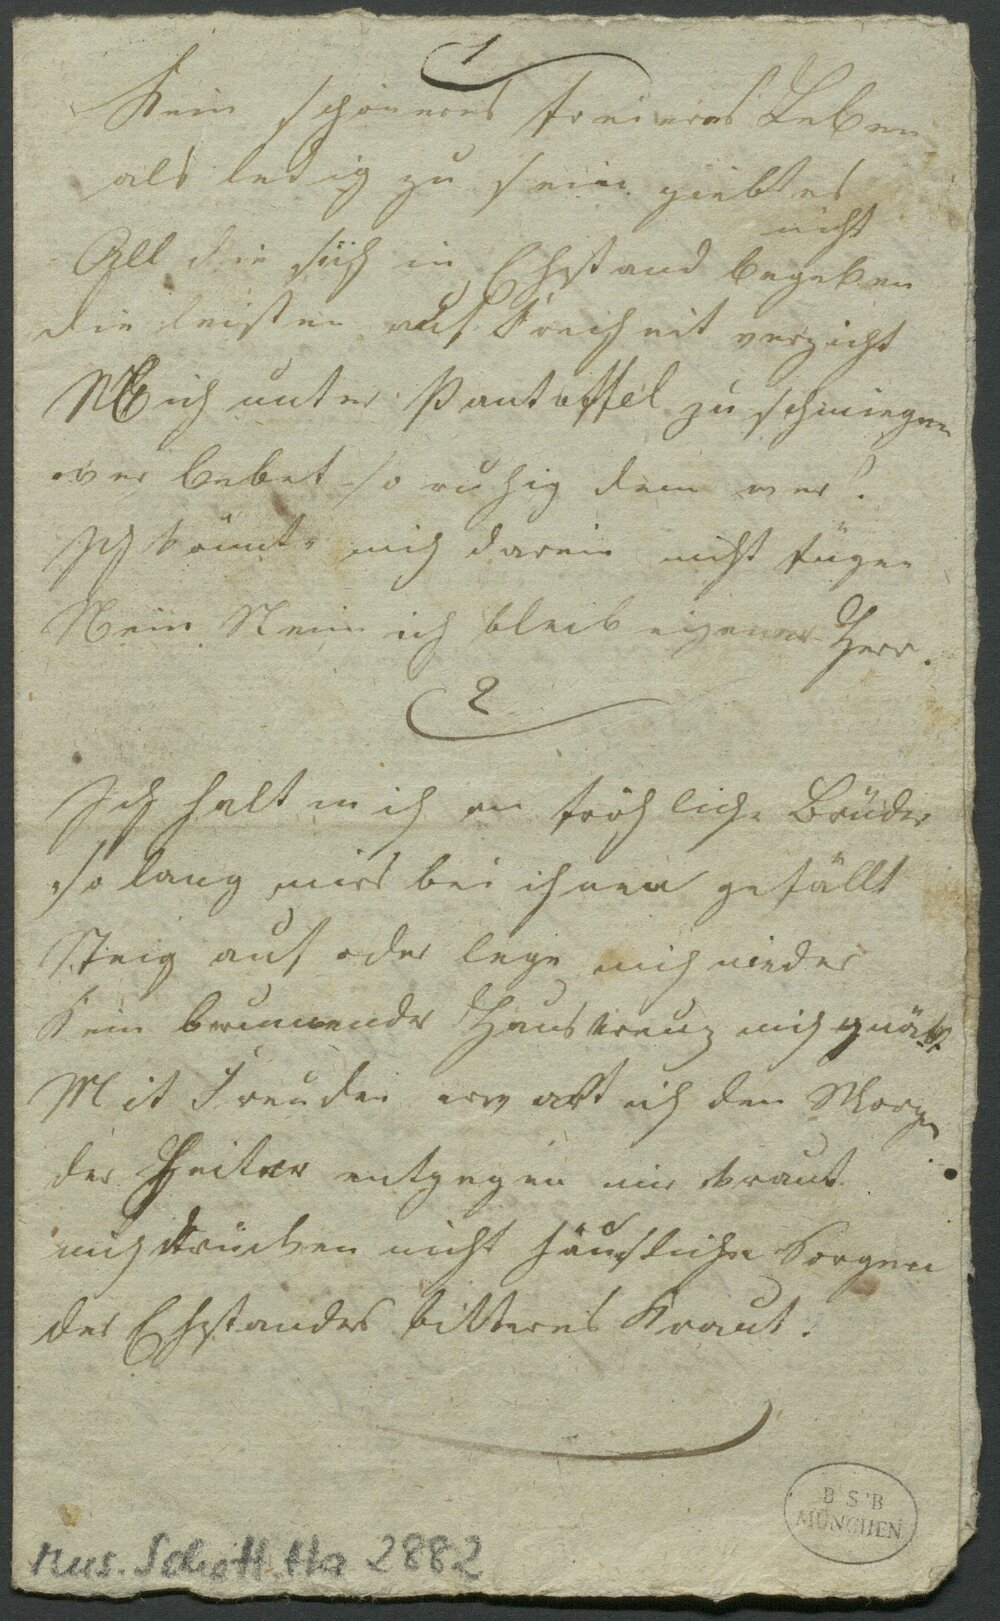 1
Kein schöneres freieres Leben
als ledig zu sein giebt es
nicht
All die sich in Ehstand begeben
die leisten auf Freiheit verzicht
Mich unter Pantoffel zu schmiegen
wer lebet so ruhig denn wer?
Ich könnte mich darein nicht fügen
Nein Nein ich bleib eigener Herr.
2
Ich halt mich an fröhliche Brüder
so lang mirs bei ihnen gefällt
Steig auf oder lege mich nieder
Kein brummendes Hauskreuz mich quält.
Mit Freuden erwart ich den Morgen
der Heiter entgegen mir
mich drücken nicht häusliche Sorgen
des Ehstandes bitteres Kraut.
B S B
MÜNCHEN
Mus. Schott. Ha 2882